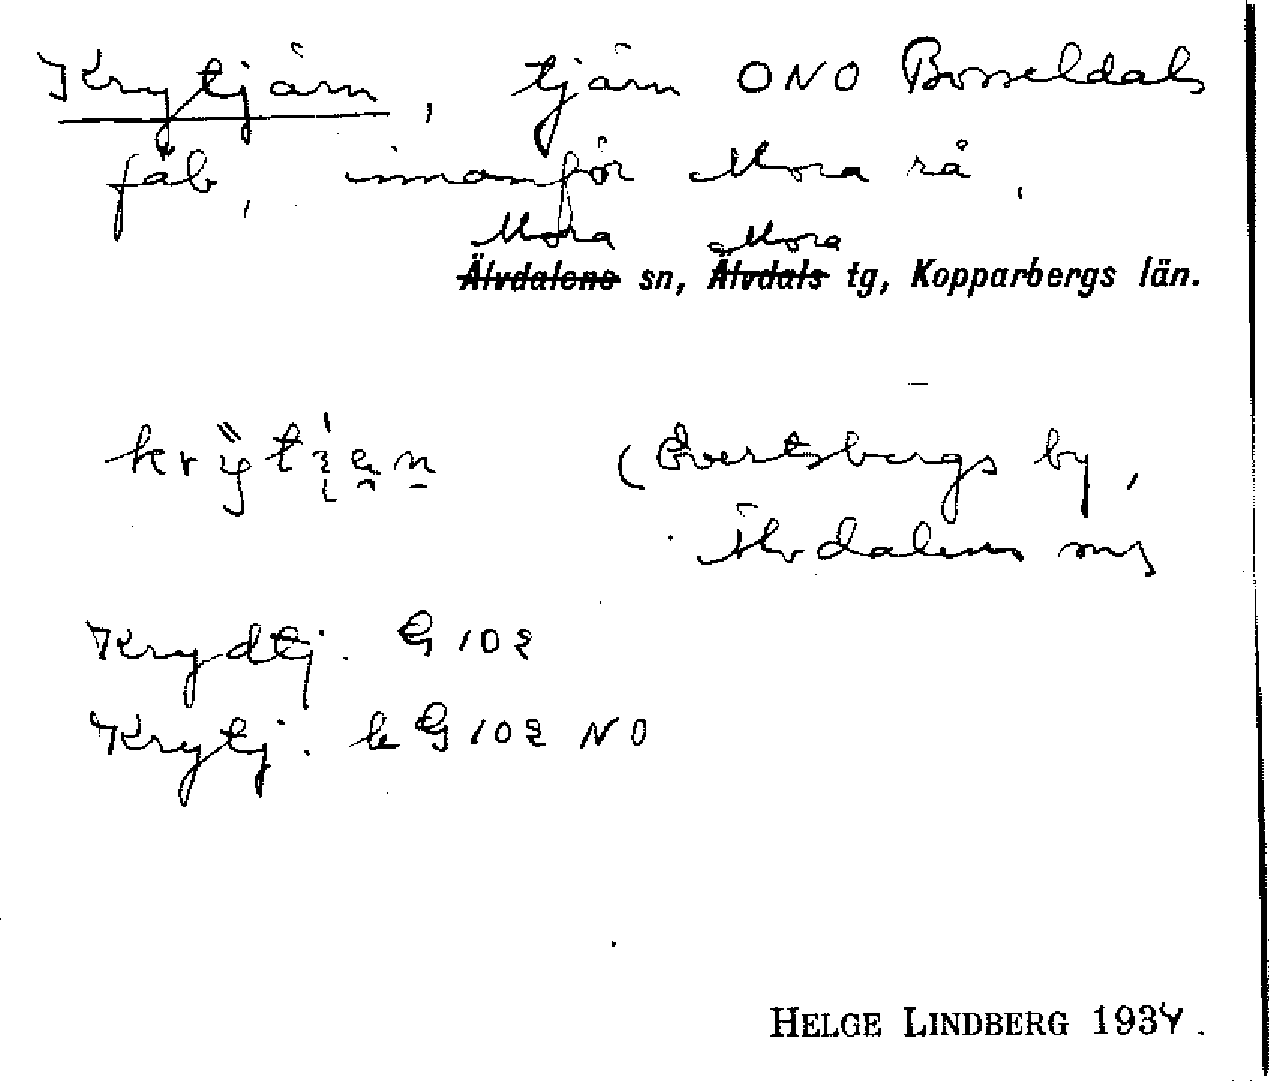 Krytjärn, tjärn ONO Bosseldals
fäb, innanför Mora rå,
Mora Mora
Älvdalens sn, Älvdals tg, Kopparbergs län.
(Evertsbergs by,
Älvdalens sn)
Krydtj. G 102
Krytj. k G 102 NO
HELGE LINDBERG 1934.